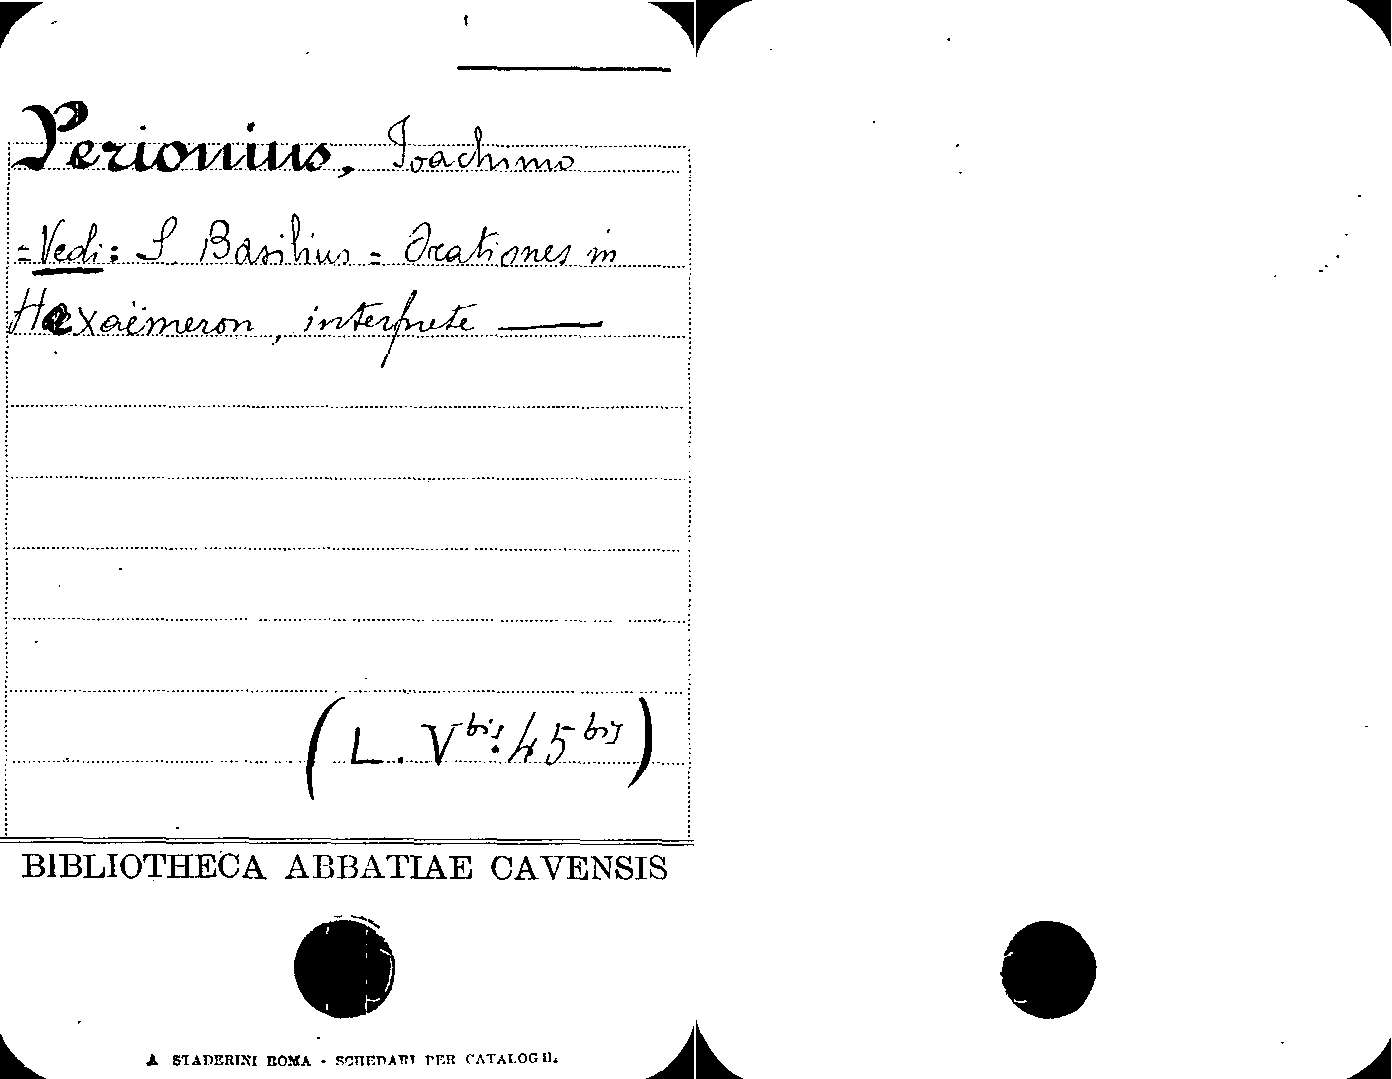 Perionius, Ioachimo
= Vedi: S. Basilius = Orationes in
Hexaëmeron, interprete ——
(L. V bis: 45 bis)
BIBLIOTHECA ABBATIAE CAVENSIS
A STADERINI ROMA - SCHEDARI PER CATALOGHI.